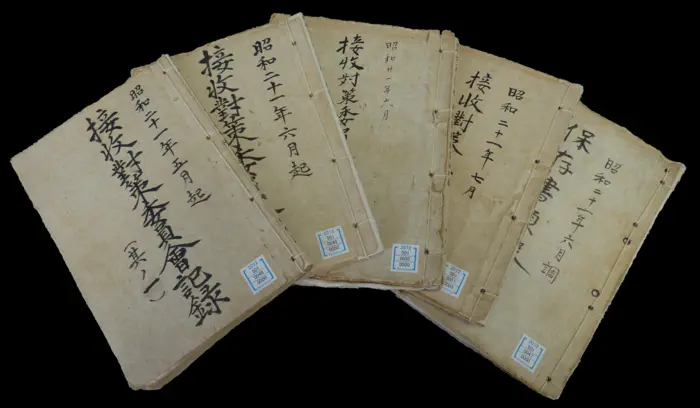 昭和二十一年五月起
接收對策委員會記錄
(其ノ一)
昭和二十一年六月起
接收對策委員
昭和廿一年六月
接收對策委員
昭和二十一年七月
接收對策
昭和二十一年六月調
保存書類